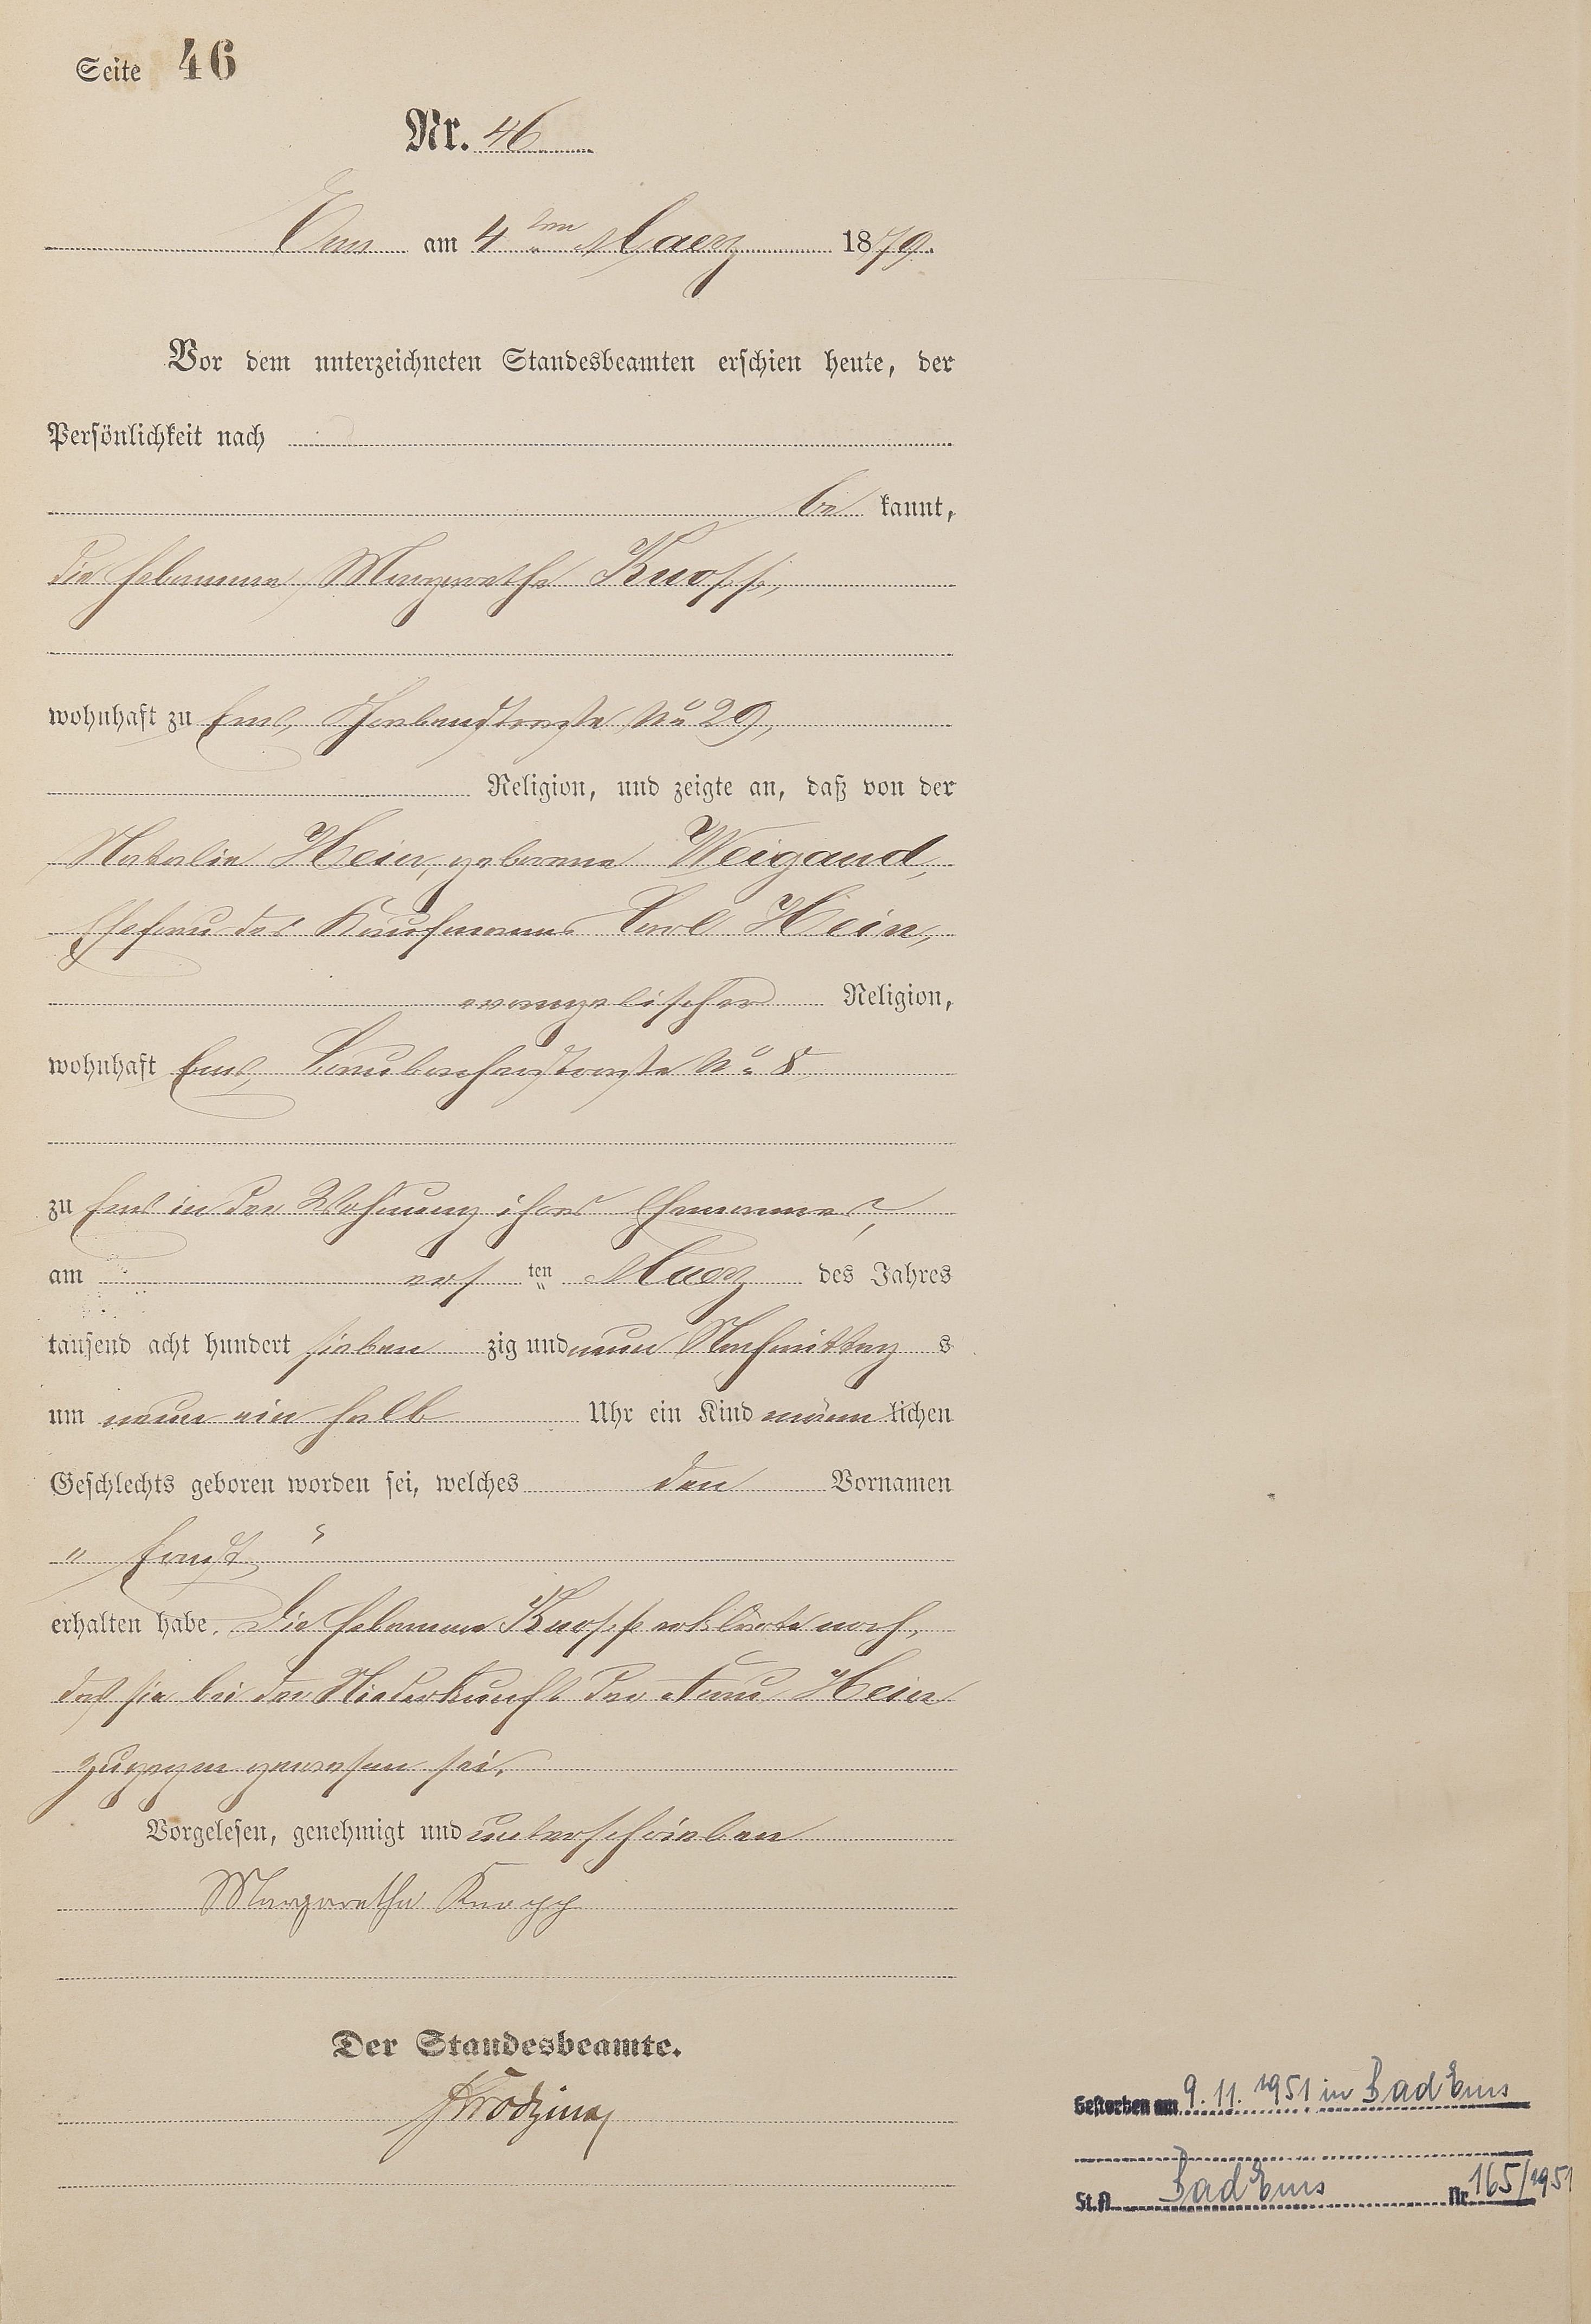 Seite 46
Nr. 46
Ems am 4 ten Maerz 1879.
Vor dem unterzeichneten Standesbeamten erschien heute, der
Persönlichkeit nach
be kannt,
die Hebamme Margarethe Knopp,
wohnhaft zu Ems, No 29,
Religion, und zeigte an, daß von der
Natalie Hein, geborene Weigand,
Ehefrau des Kaufmanns Carl Hein,
evangelischer Religion,
wohnhaft Ems, No 8
zu Ems in der Wohnung ihres Ehemannes,
am ers ten Maerz des Jahres
tausend acht hundert sieben zig und neun Nachmittag s
um neun ein halb Uhr ein Kind männ lichen
Geschlechts geboren worden sei, welches den Vornamen
" Ernst "
erhalten habe. Die Hebamme Knopp erklärte noch,
daß sie bei der Niederkunft der Frau Hein
zugegen gewesen sei.
Vorgelesen, genehmigt und unterschrieben
Margaretha Knopp
Der Standesbeamte.
Gestorben am 9.11.1951 in Bad Ems
St.A. Bad Ems Nr. 165/1951